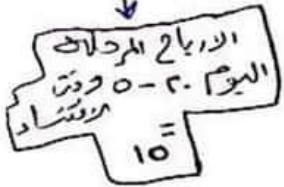 الارباح المرحلة
اليوم ٢٠ - ٥ وحتى
الاكتتاب
=
١٥